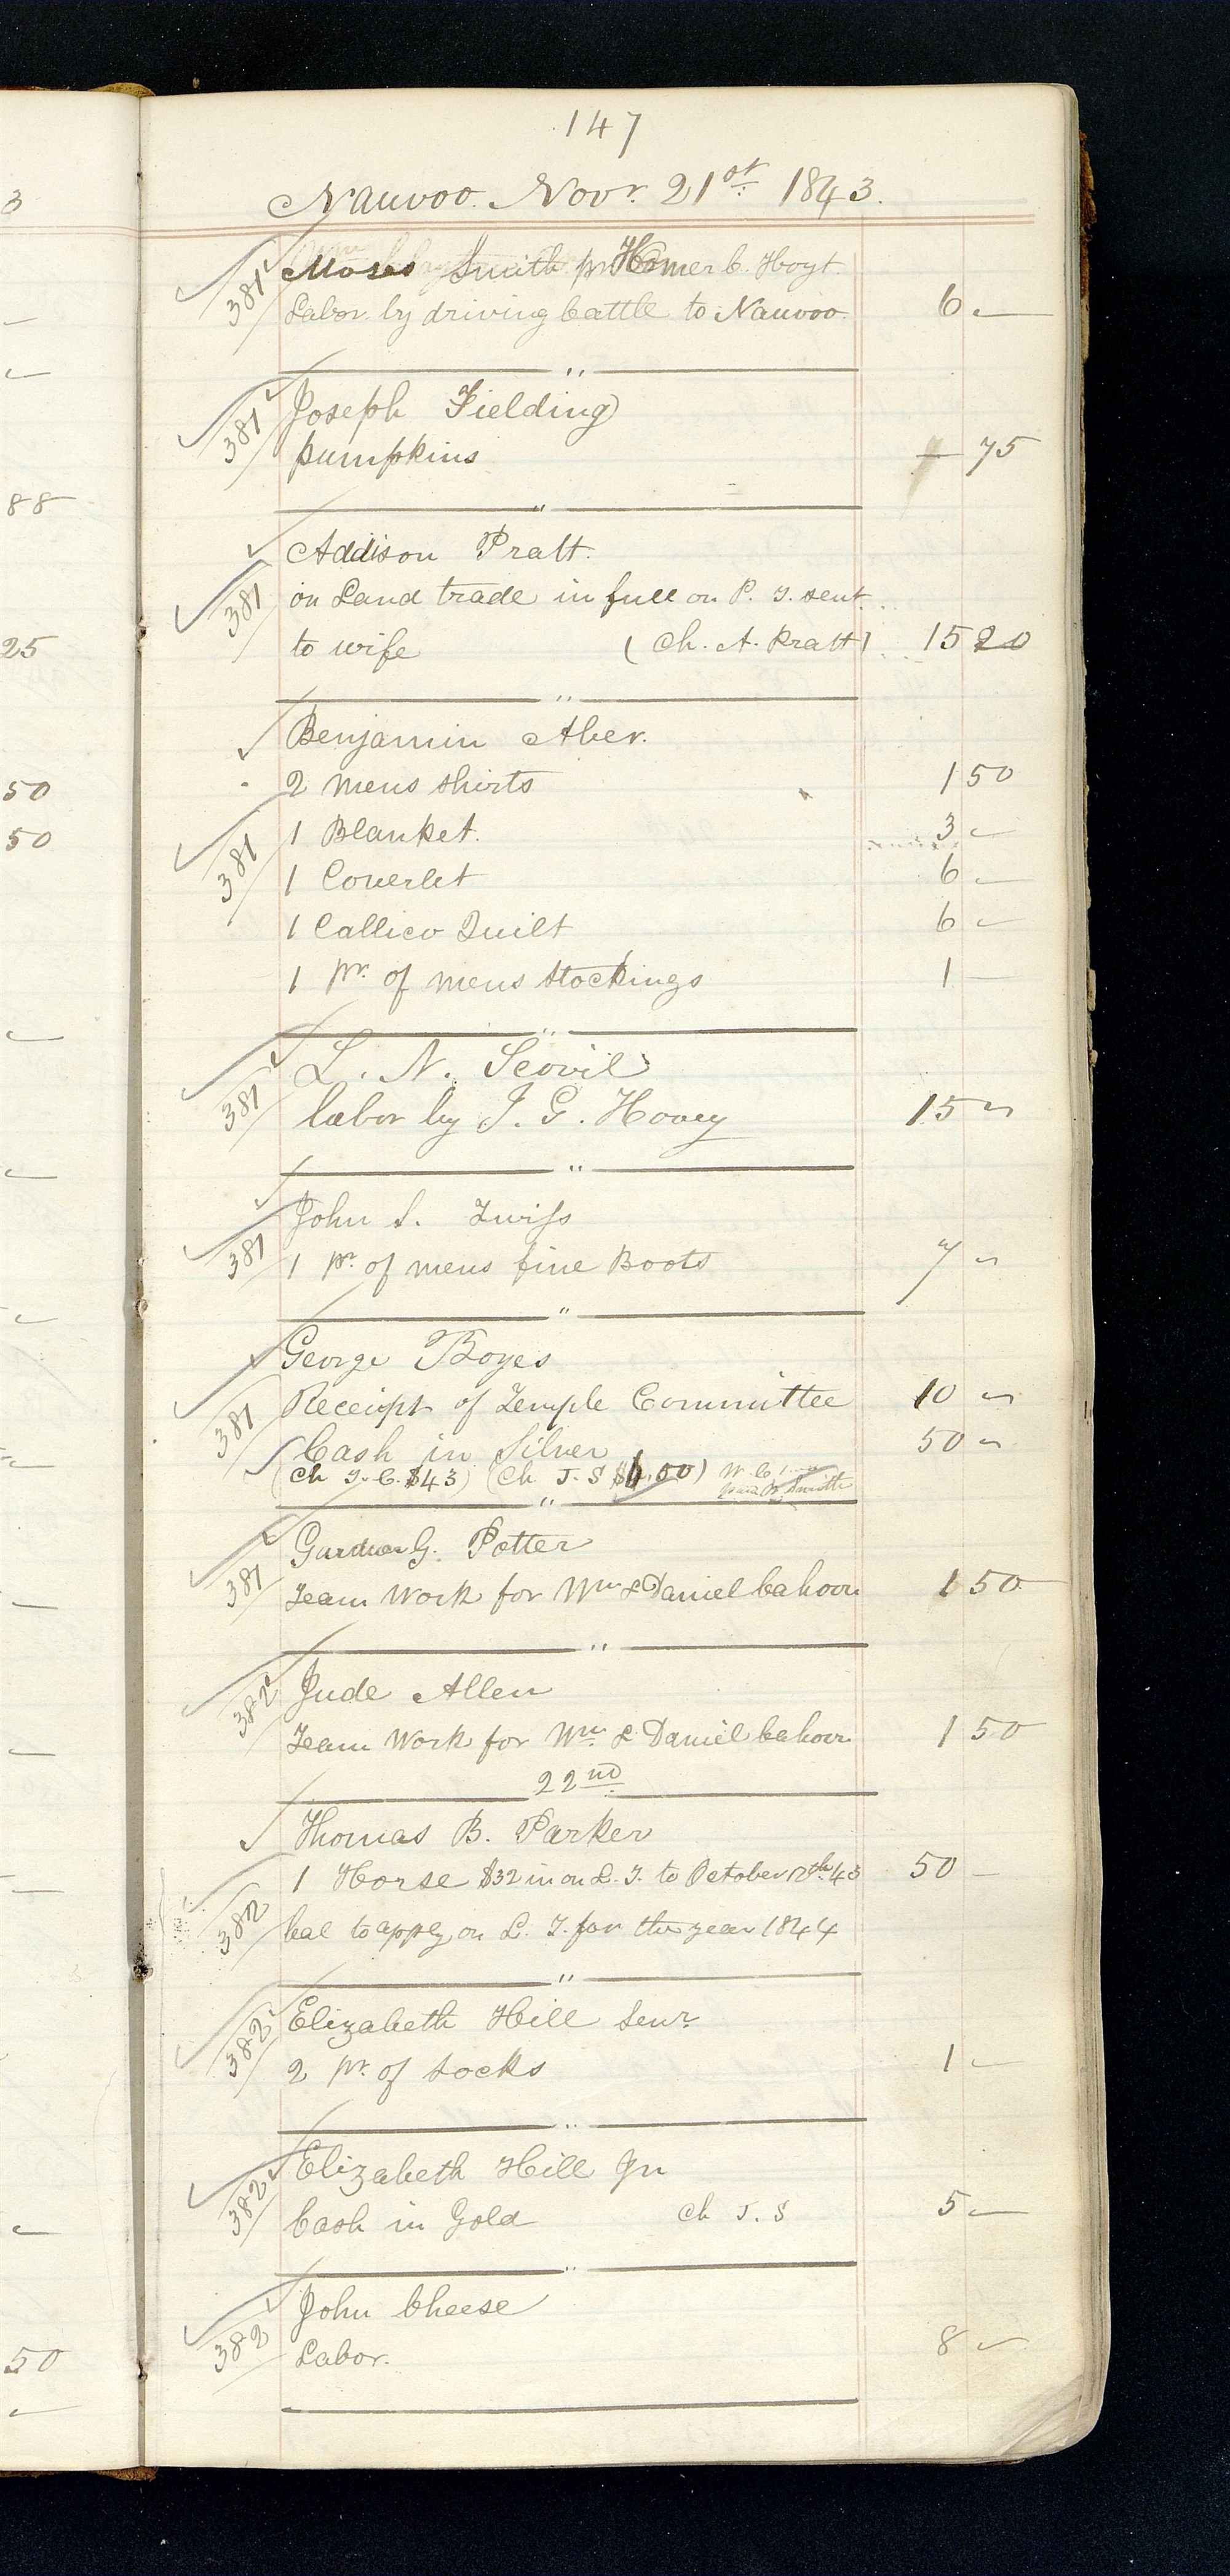 147
Nauvoo. Novr. 21st 1843.
381 Moses Smith pr Homer C. Hoyt.
Labor by driving Cattle to Nauvoo. 6 —
"
381 Joseph Fielding
pumpkins — 75
"
Addison Pratt.
381 on Land trade in full on P. T. sent
to wife (Ch. A. Pratt) 15 20
"
Benjamin Aber.
2 mens shirts 1 50
381 1 Blanket. 3 —
1 Coverlet 6 —
1 Callico Quilt 6 —
1 pr. of mens stockings 1 —
"
L. N. Scovil
381 labor by J. G. Hovey 15 —
"
John S. Twiss
381 1 pr. of mens fine Boots 7 —
"
George Boyes
381 Receipt of Temple Committee 10 —
Cash in Silver 50 —
(Ch T. C. $43) (Ch J. S $6,00) W. C. 1
Smith
"
Gardner G. Potter
381 Team Work for Wm & Daniel Cahoon 1 50
"
382 Jude Allen
Team Work for Wm. & Daniel Cahoon 1 50
22nd
Thomas B. Parker
1 Horse $32 in on L. T. to October 12th 43 50 —
382 bal to apply on L. T. for the year 1844
"
382 Elizabeth Hill Senr.
2 pr. of socks 1 —
"
382 Elizabeth Hill Jn
Cash in Gold Ch J. S 5 —
"
John Cheese
382 Labor. 8 —
3
88
25
50
50
50